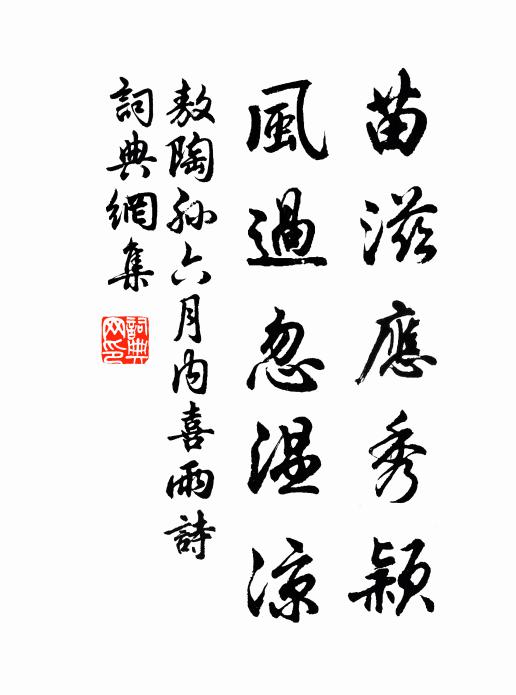 苗滋應秀穎
風過忽溫涼
敖陶孙六月內喜雨詩
詞典網集
詞典网印